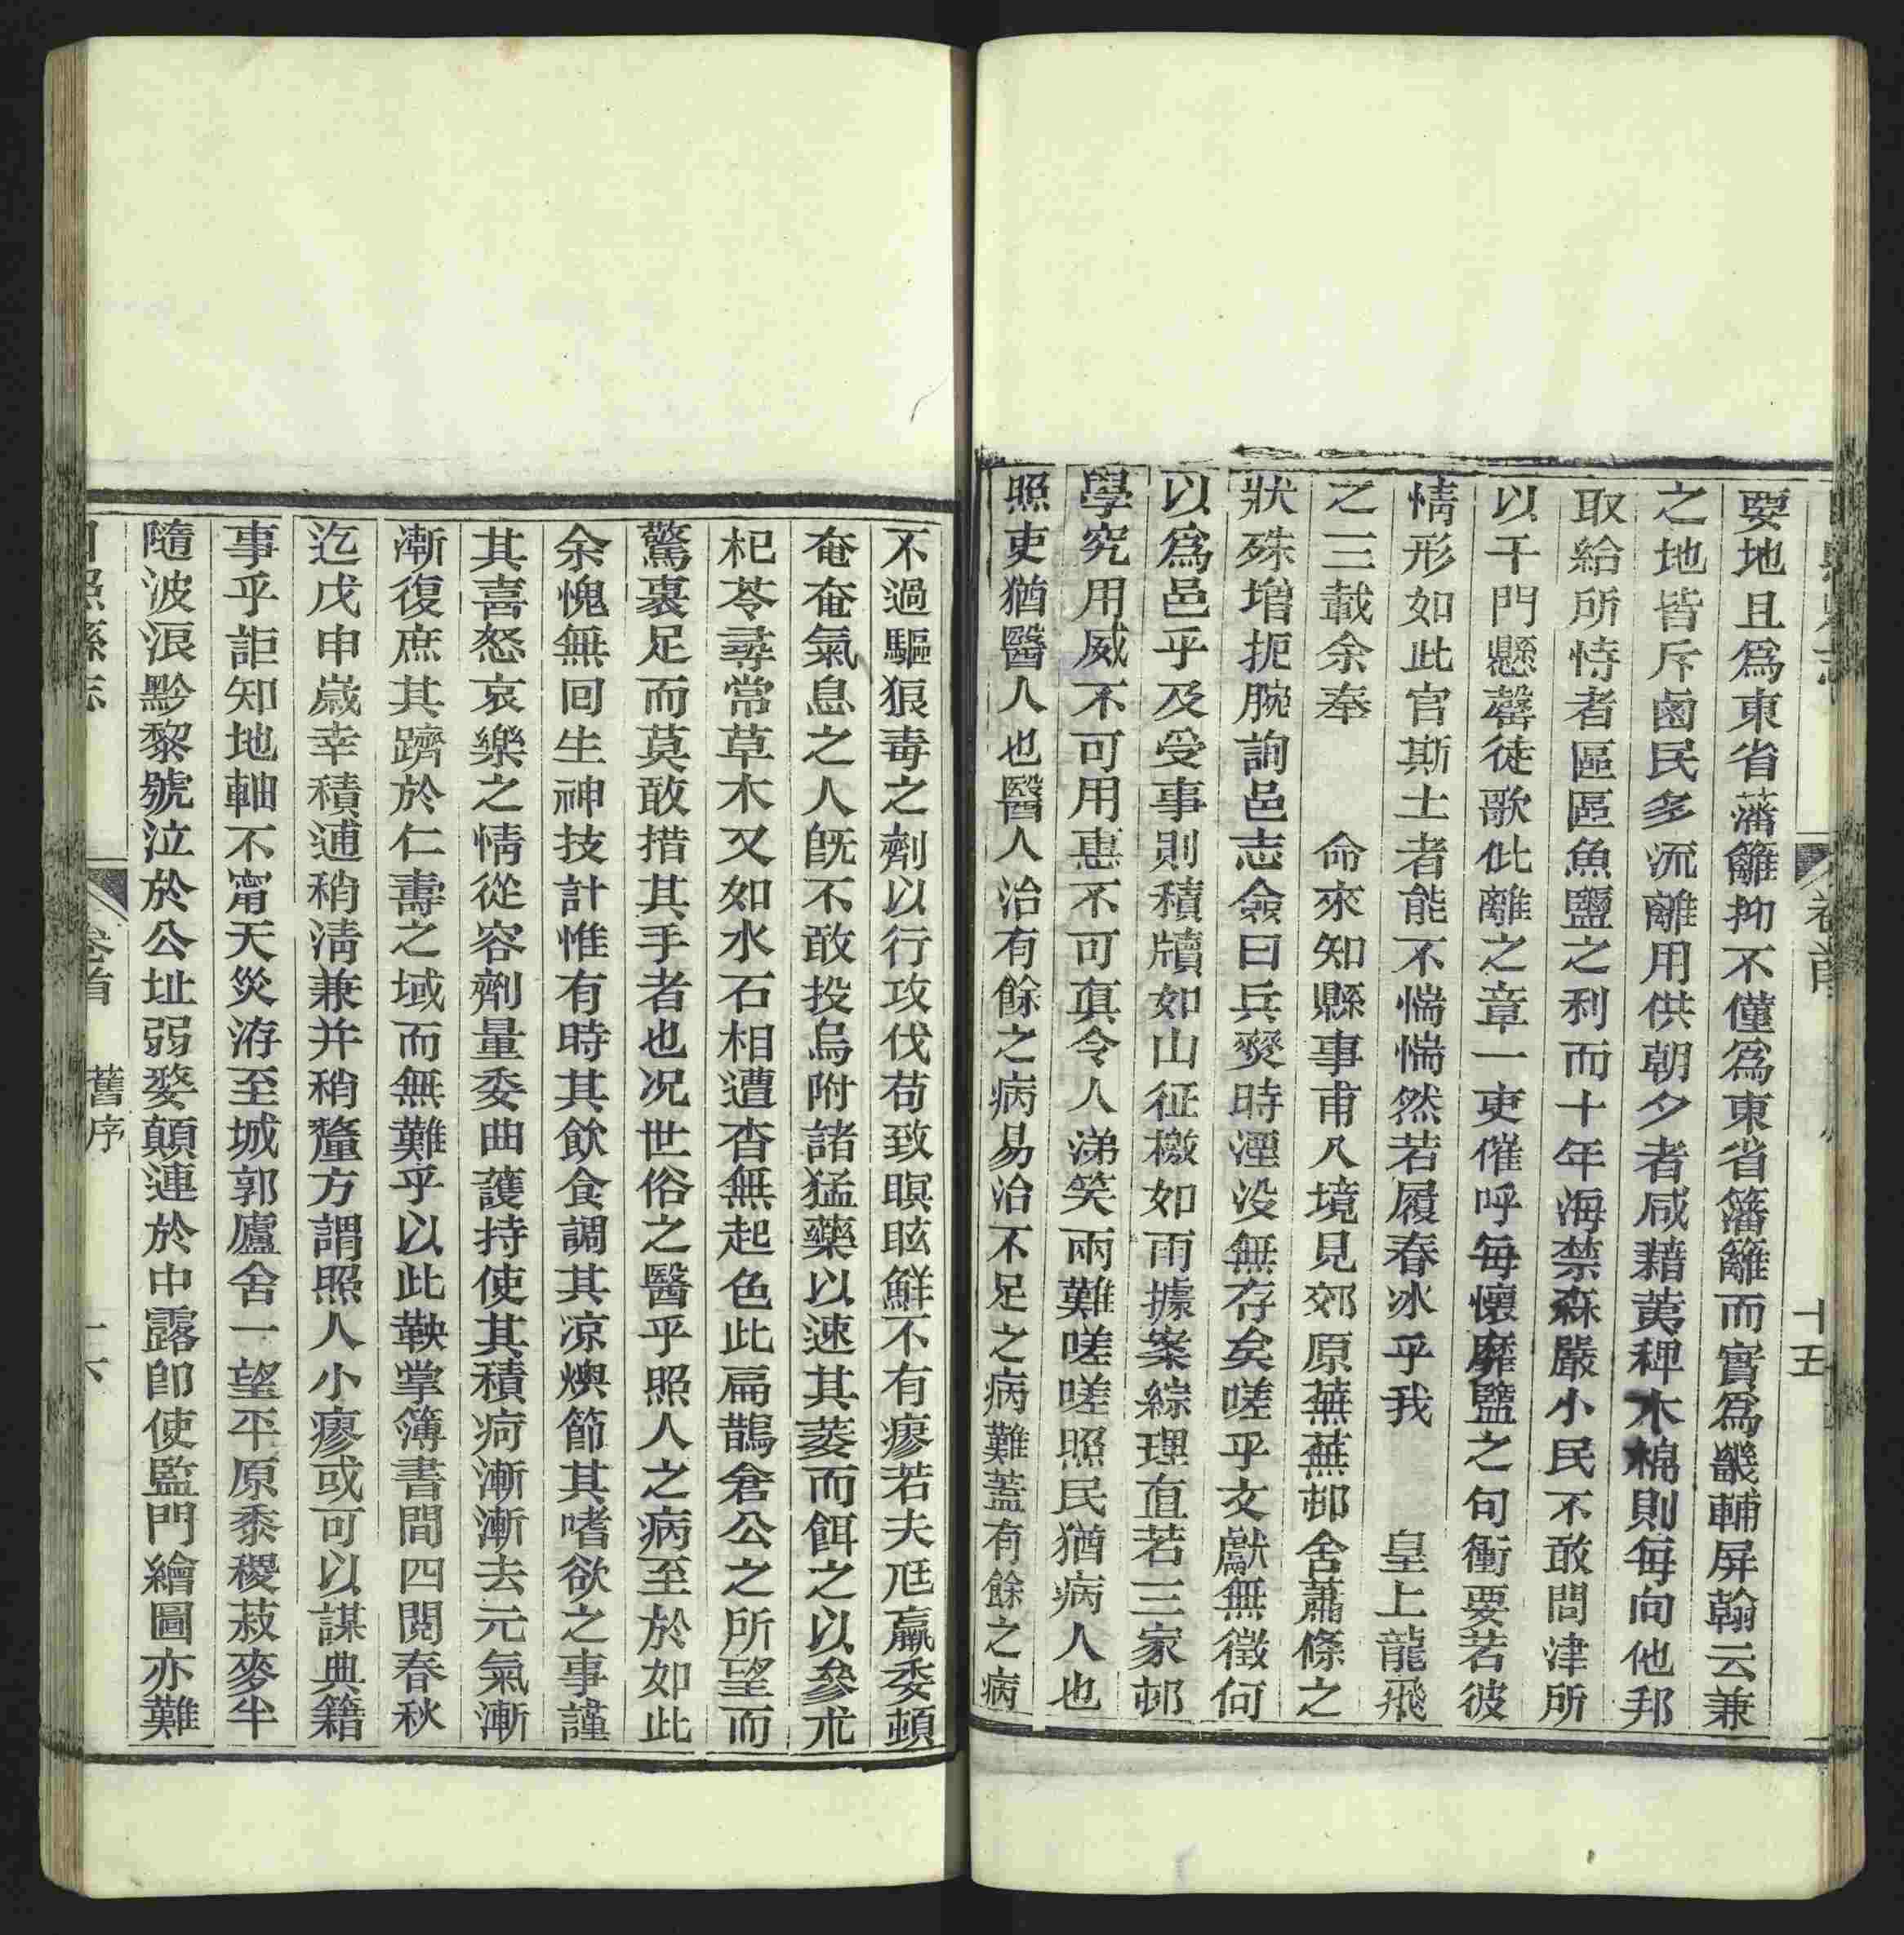 要地且爲東省藩籬抑不僅爲東省籓籬而實爲畿輔屏翰云兼
之地皆斥鹵民多流離用供朝夕者咸藉荑稗木棉則每向他邦
取給所恃者區區魚鹽之利而十年海禁森嚴小民不敢問津所
以千門懸罄徒歌仳離之章一吏催呼每懷靡盬之句衝要若彼
情形如此官斯土者能不惴惴然若履春冰乎我　皇上龍飛
之三載余奉　命來知縣事甫入境見郊原蕪蕪邨舍蕭條之
狀殊增扼腕詢邑志僉曰兵燹時湮没無存矣嗟乎文獻無徵何
以爲邑乎及受事則積牘如山征檄如雨據案綜理直若三家邨
學究用威不可用惠不可眞令人涕笑兩難嗟嗟照民猶病人也
照吏猶醫人也醫人治有餘之病易治不足之病難蓋有餘之病
不過驅狼毒之劑以行攻伐苟致瞑眩鮮不有瘳若夫尫羸委頓
奄奄氣息之人旣不敢投烏附諸猛藥以速其萎而餌之以參朮
杞苓尋常草木又如水石相遭杳無起色此扁鵲倉公之所望而
驚裹足而莫敢措其手者也况世俗之醫乎照人之病至於如此
余愧無回生神技計惟有時其飲食調其凉燠節其嗜欲之事謹
其喜怒哀樂之情從容劑量委曲護持使其積疴漸漸去元氣漸
漸復庶其躋於仁壽之域而無難乎以此鞅掌簿書間四閱春秋
迄戊申歲幸積逋稍淸兼并稍釐方謂照人小瘳或可以謀典籍
事乎詎知地軸不甯天災洊至城郭廬舍一望平原黍稷菽麥半
隨波浪黔黎號泣於公址弱婺顛連於中露卽使監門繪圖亦難
日照縣志
卷首　舊序